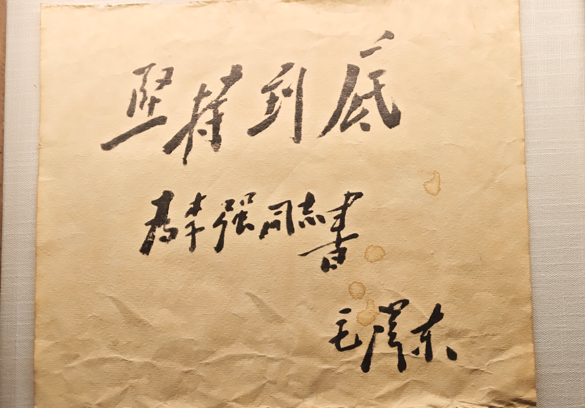 坚持到底
为李强同志書
毛澤东